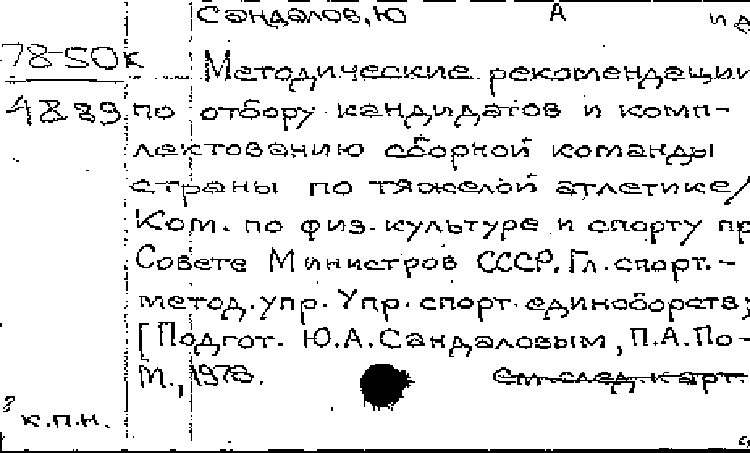 Сандалов, Ю А и д
78-50к
4883
Методические рекомендации
по отбору кандидатов и комп-
лектованию сборной команды
страны по тяжелой атлетике/
Ком. по физ. культуре и спорту пр
Совете Министров СССР. Гл. спорт.-
метод. упр. Упр. спорт. единоборств;
[Подгот. Ю.А.Сандаловым, П.А.По-
М., 1978.
см. след. карт.
к.п.н.